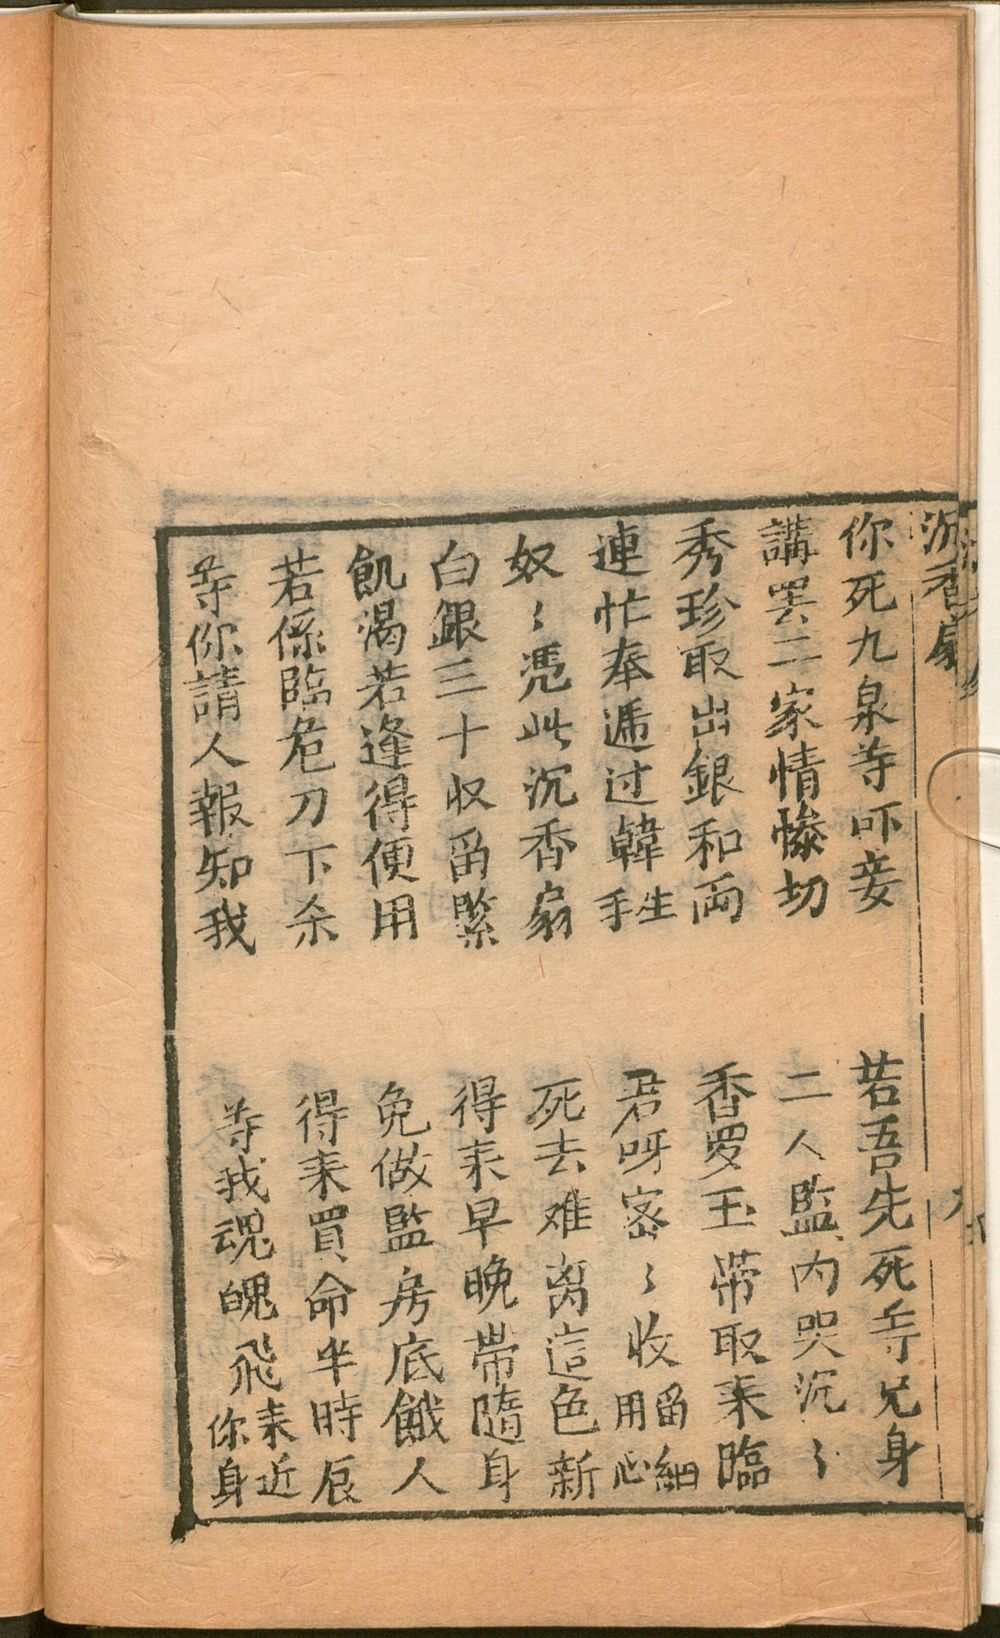 沉香扇
你死九泉等吓妾
若吾先死等兄身
講罢二家情慘切
二人監内哭沉〻
秀珍取出銀和両
香罗玉带取来臨
連忙奉逓过韓生手
君呀密〻收留細用心
奴〻凴此沉香扇
死去难离這色新
白銀三十収畄緊
得来早晚带隨身
飢渴若逢得便用
免做監房底餓人
若係臨危刀下杀
得来買命半時辰
等你請人報知我
等我魂魄飛来近你身